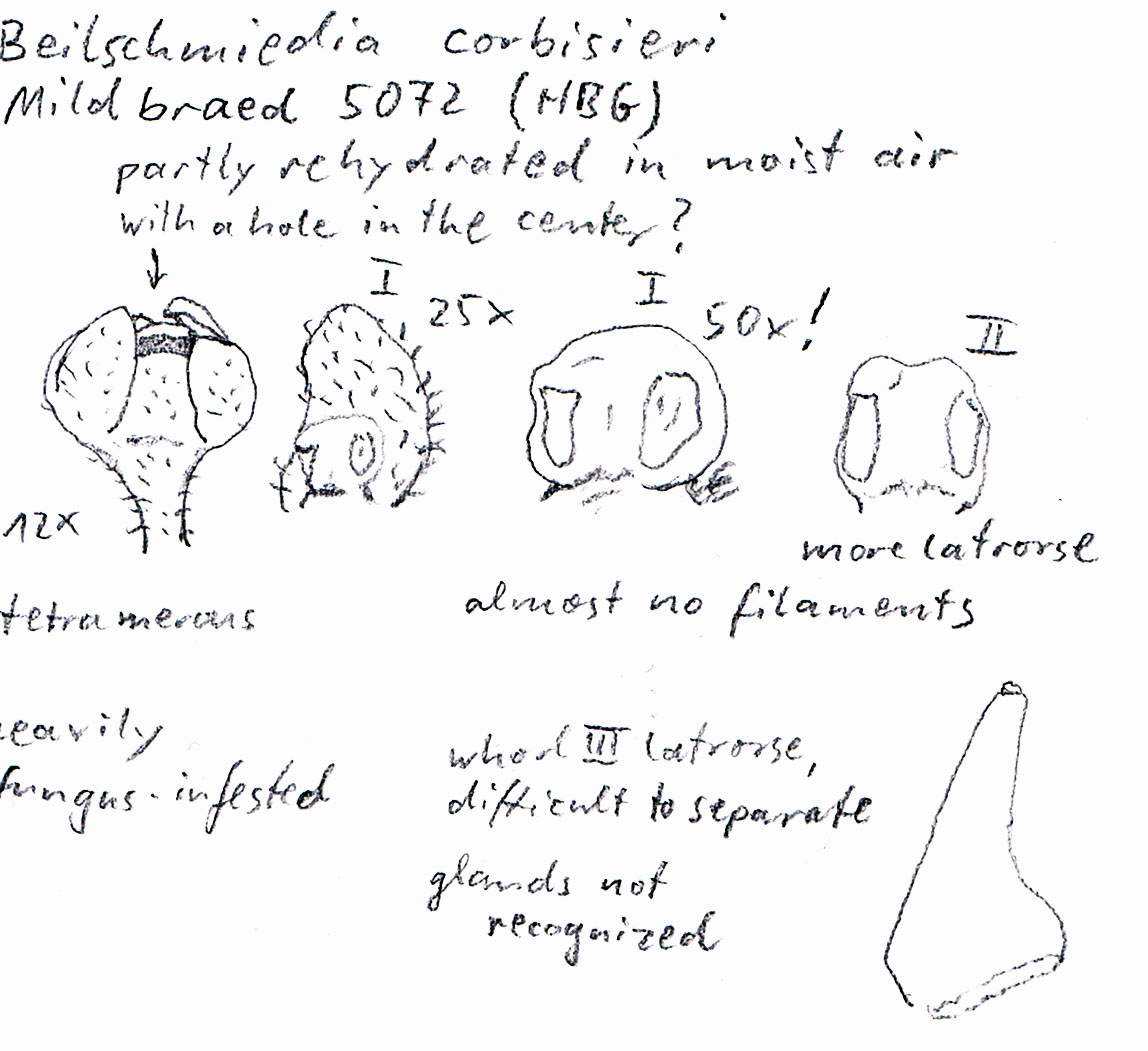 Beilschmiedia corbisieri
Mildbraed 5072 (HBG)
partly rehydrated in moist air
with a hole in the center?
I
25x
I
50x!
II
12x
more latrorse
tetramerous
almost no filaments
heavily
fungus-infested
whorl III latrorse,
difficult to separate
glands not
recognized